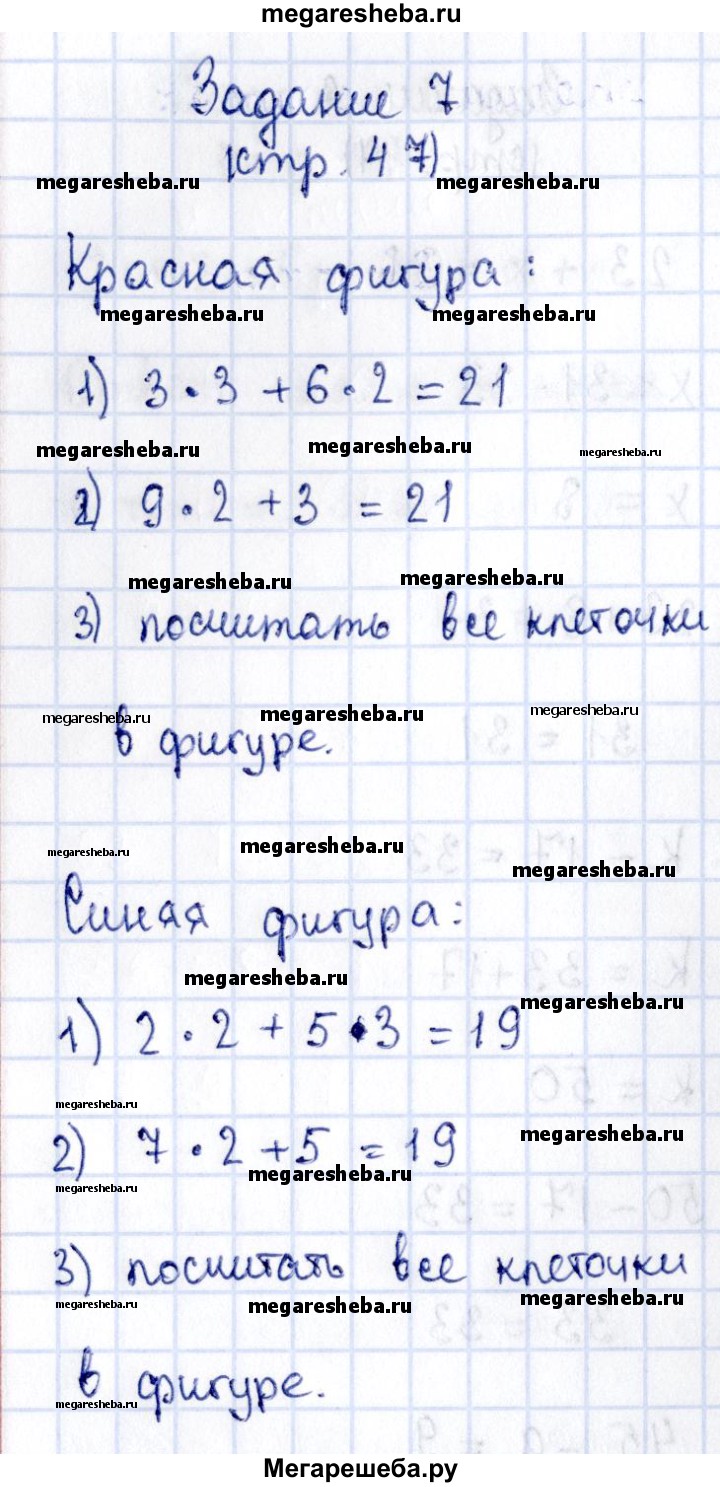 megaresheba.ru
Задание 7
(стр. 47)
megaresheba.ru megaresheba.ru
Красная фигура:
megaresheba.ru megaresheba.ru
1) 3 · 3 + 6 · 2 = 21
megaresheba.ru megaresheba.ru megaresheba.ru
2) 9 · 2 + 3 = 21
megaresheba.ru megaresheba.ru
3) посчитать все клеточки
megaresheba.ru megaresheba.ru megaresheba.ru
в фигуре.
megaresheba.ru megaresheba.ru megaresheba.ru
Синяя фигура:
megaresheba.ru megaresheba.ru
1) 2 · 2 + 5 · 3 = 19
megaresheba.ru megaresheba.ru
2) 7 · 2 + 5 = 19
megaresheba.ru megaresheba.ru
3) посчитать все клеточки
megaresheba.ru megaresheba.ru megaresheba.ru
в фигуре.
megaresheba.ru
Мегарешеба.ру